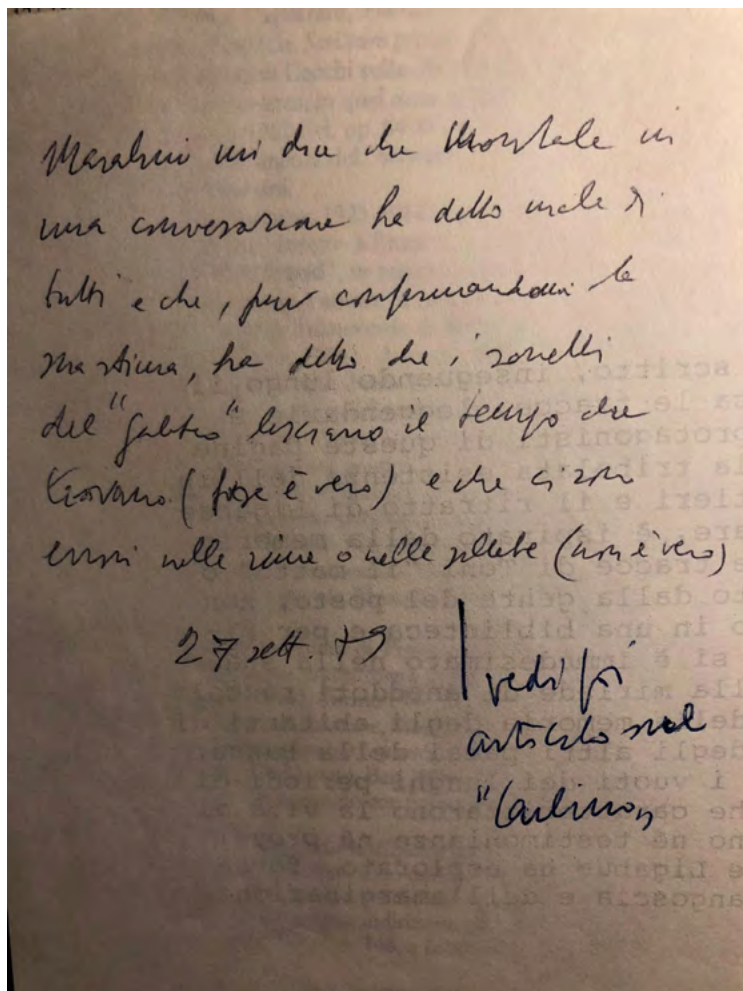 Marabini mi dice che Montale in
una conversazione ha detto male di
tutti e che, pur confermandomi la
sua stima, ha detto che i sonetti
del "Galateo" lasciano il tempo che
trovano (forse è vero) e che ci sono
errori nelle rime o nelle sillabe (non è vero)
27 sett. 79
vedi poi
articolo sul
"Carlino"